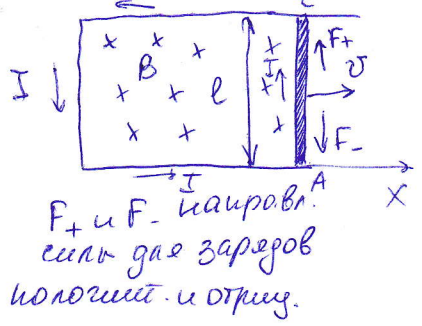 C
I B l I F₊ υ
F₋
I A X
F₊ и F₋ направл.
силы для зарядов
пологшит. и отриц.